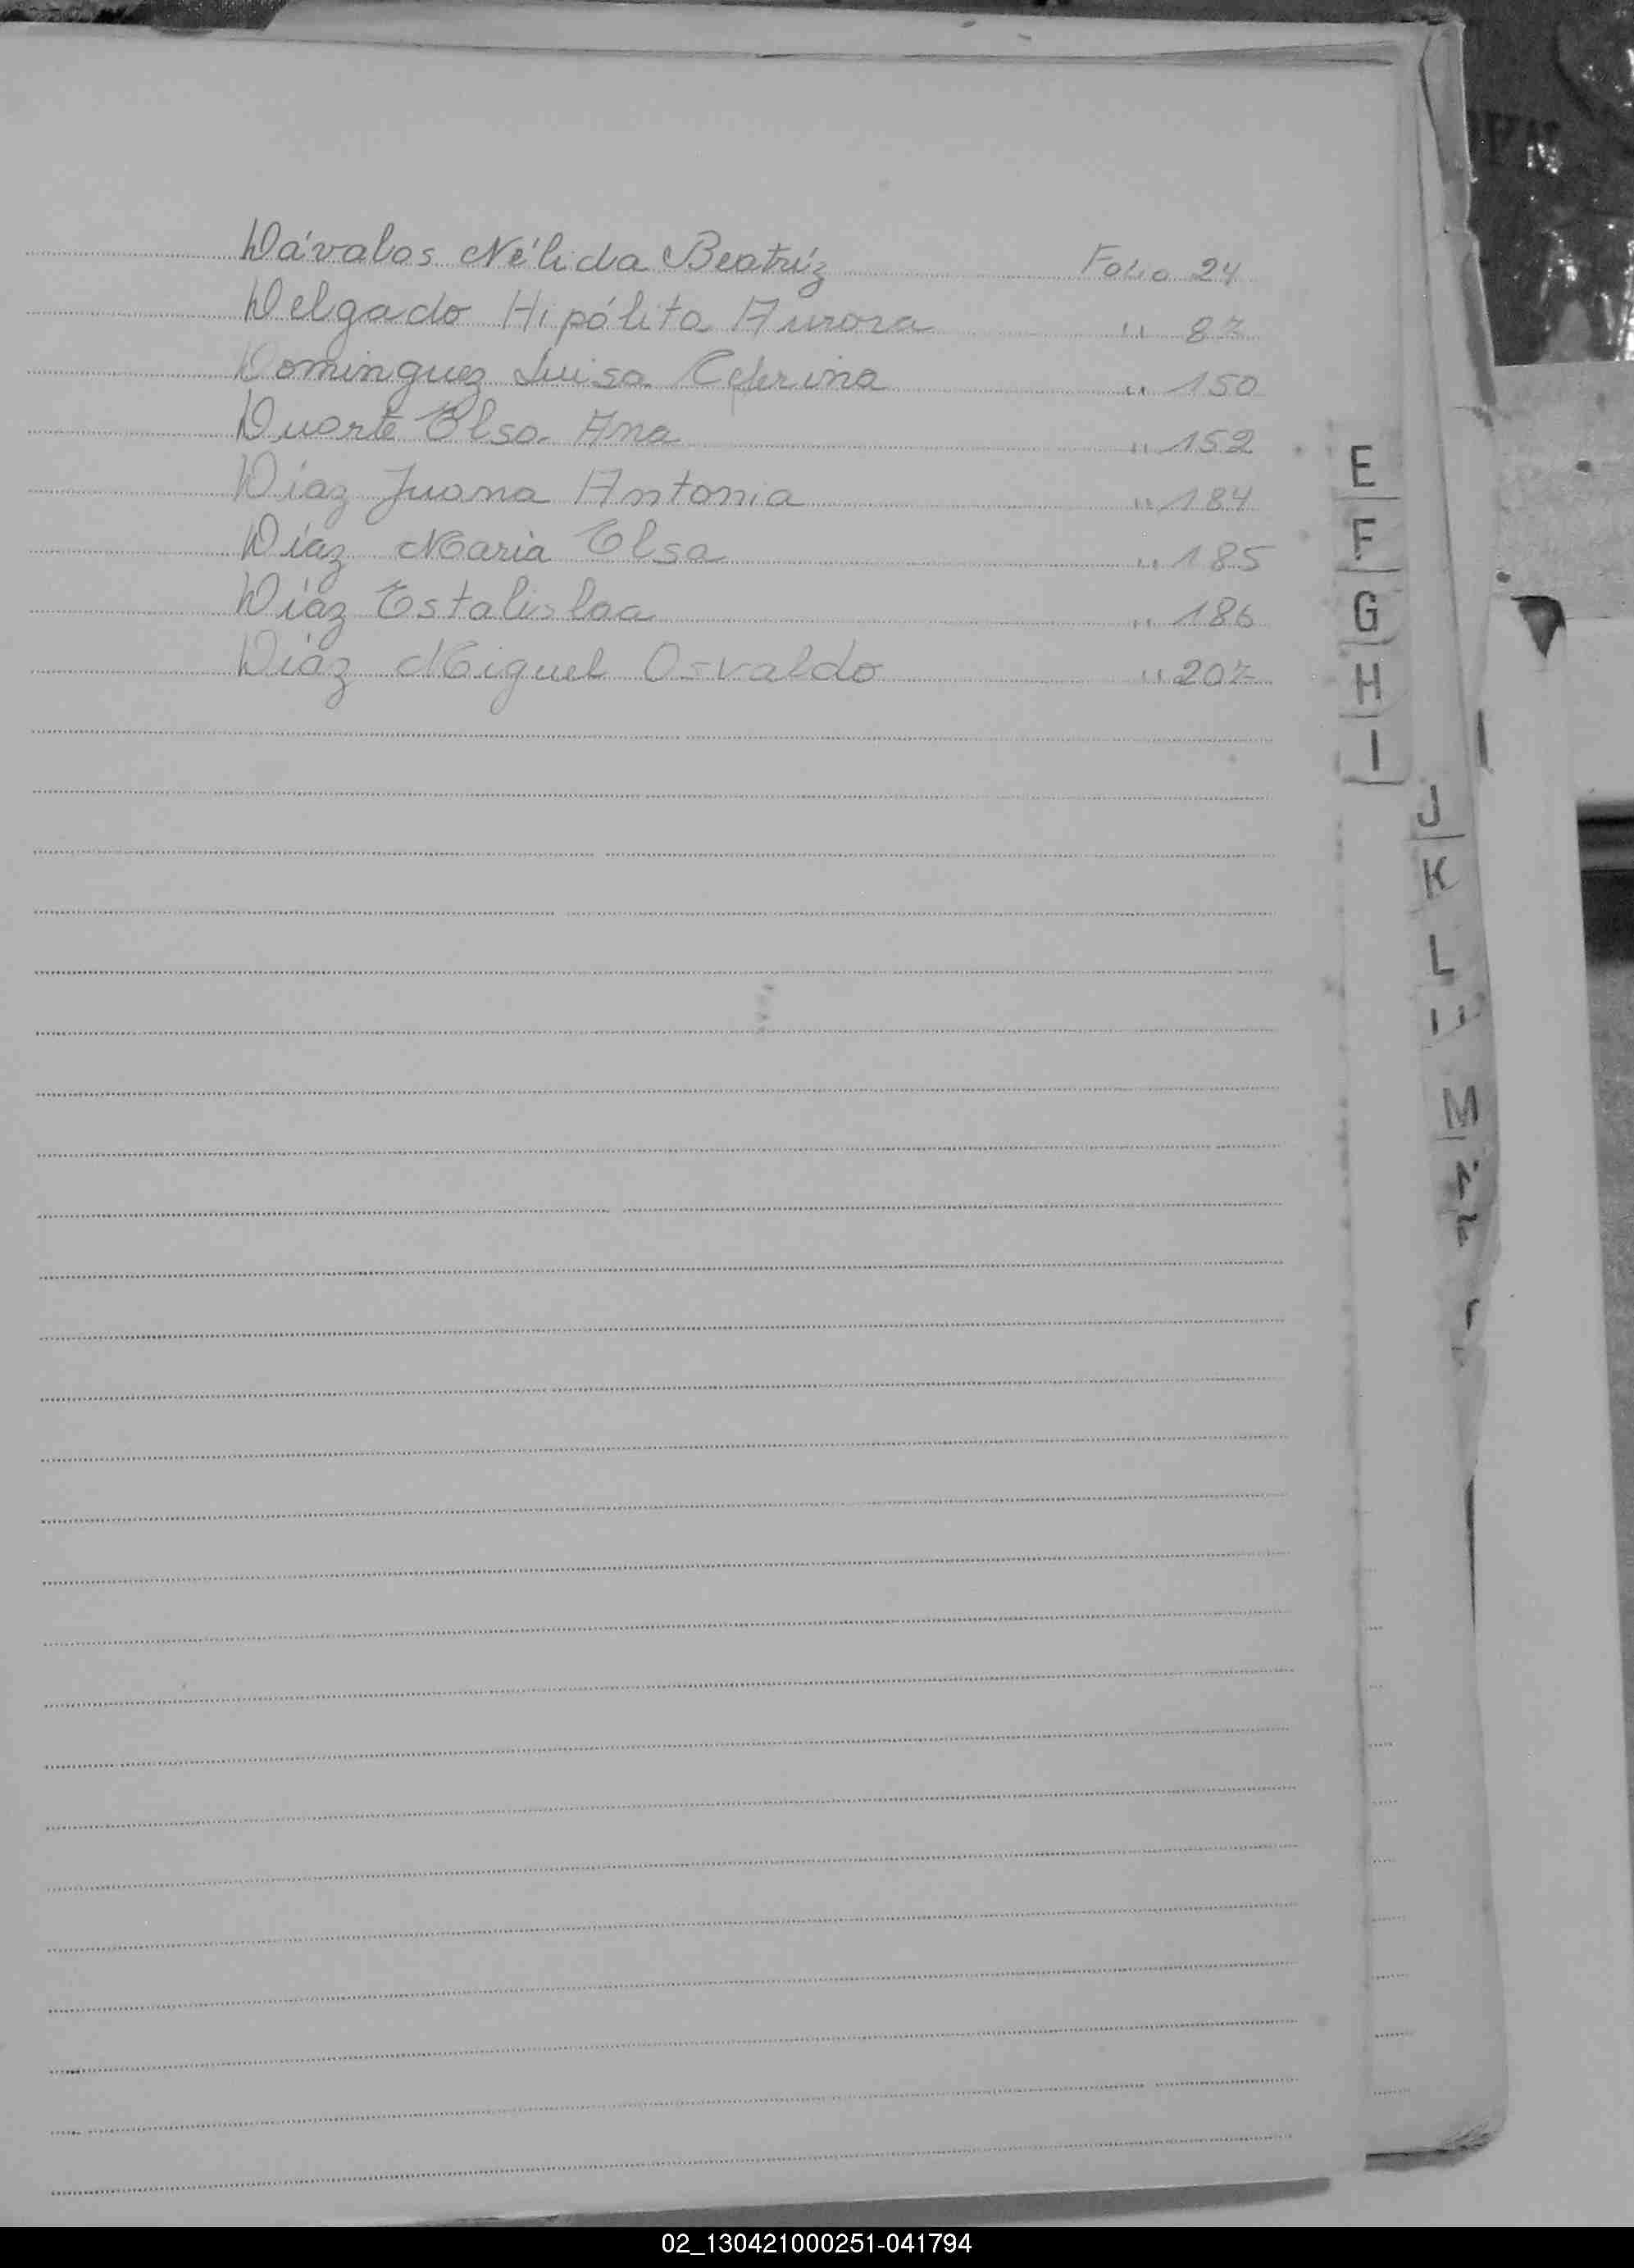 Dávalos Nélida Beatríz Folio 24
Delgado Hipólita Aurora " 87
Dominguez Luisa Ceferina " 150
Duarte Elsa Ana " 152
Díaz Juana Antonia " 184
Díaz Maria Elsa " 185
Díaz Estalislaa " 186
Díaz Miguel Osvaldo " 207
E
F
G
H
I
J
K
L
M
02_130421000251-041794